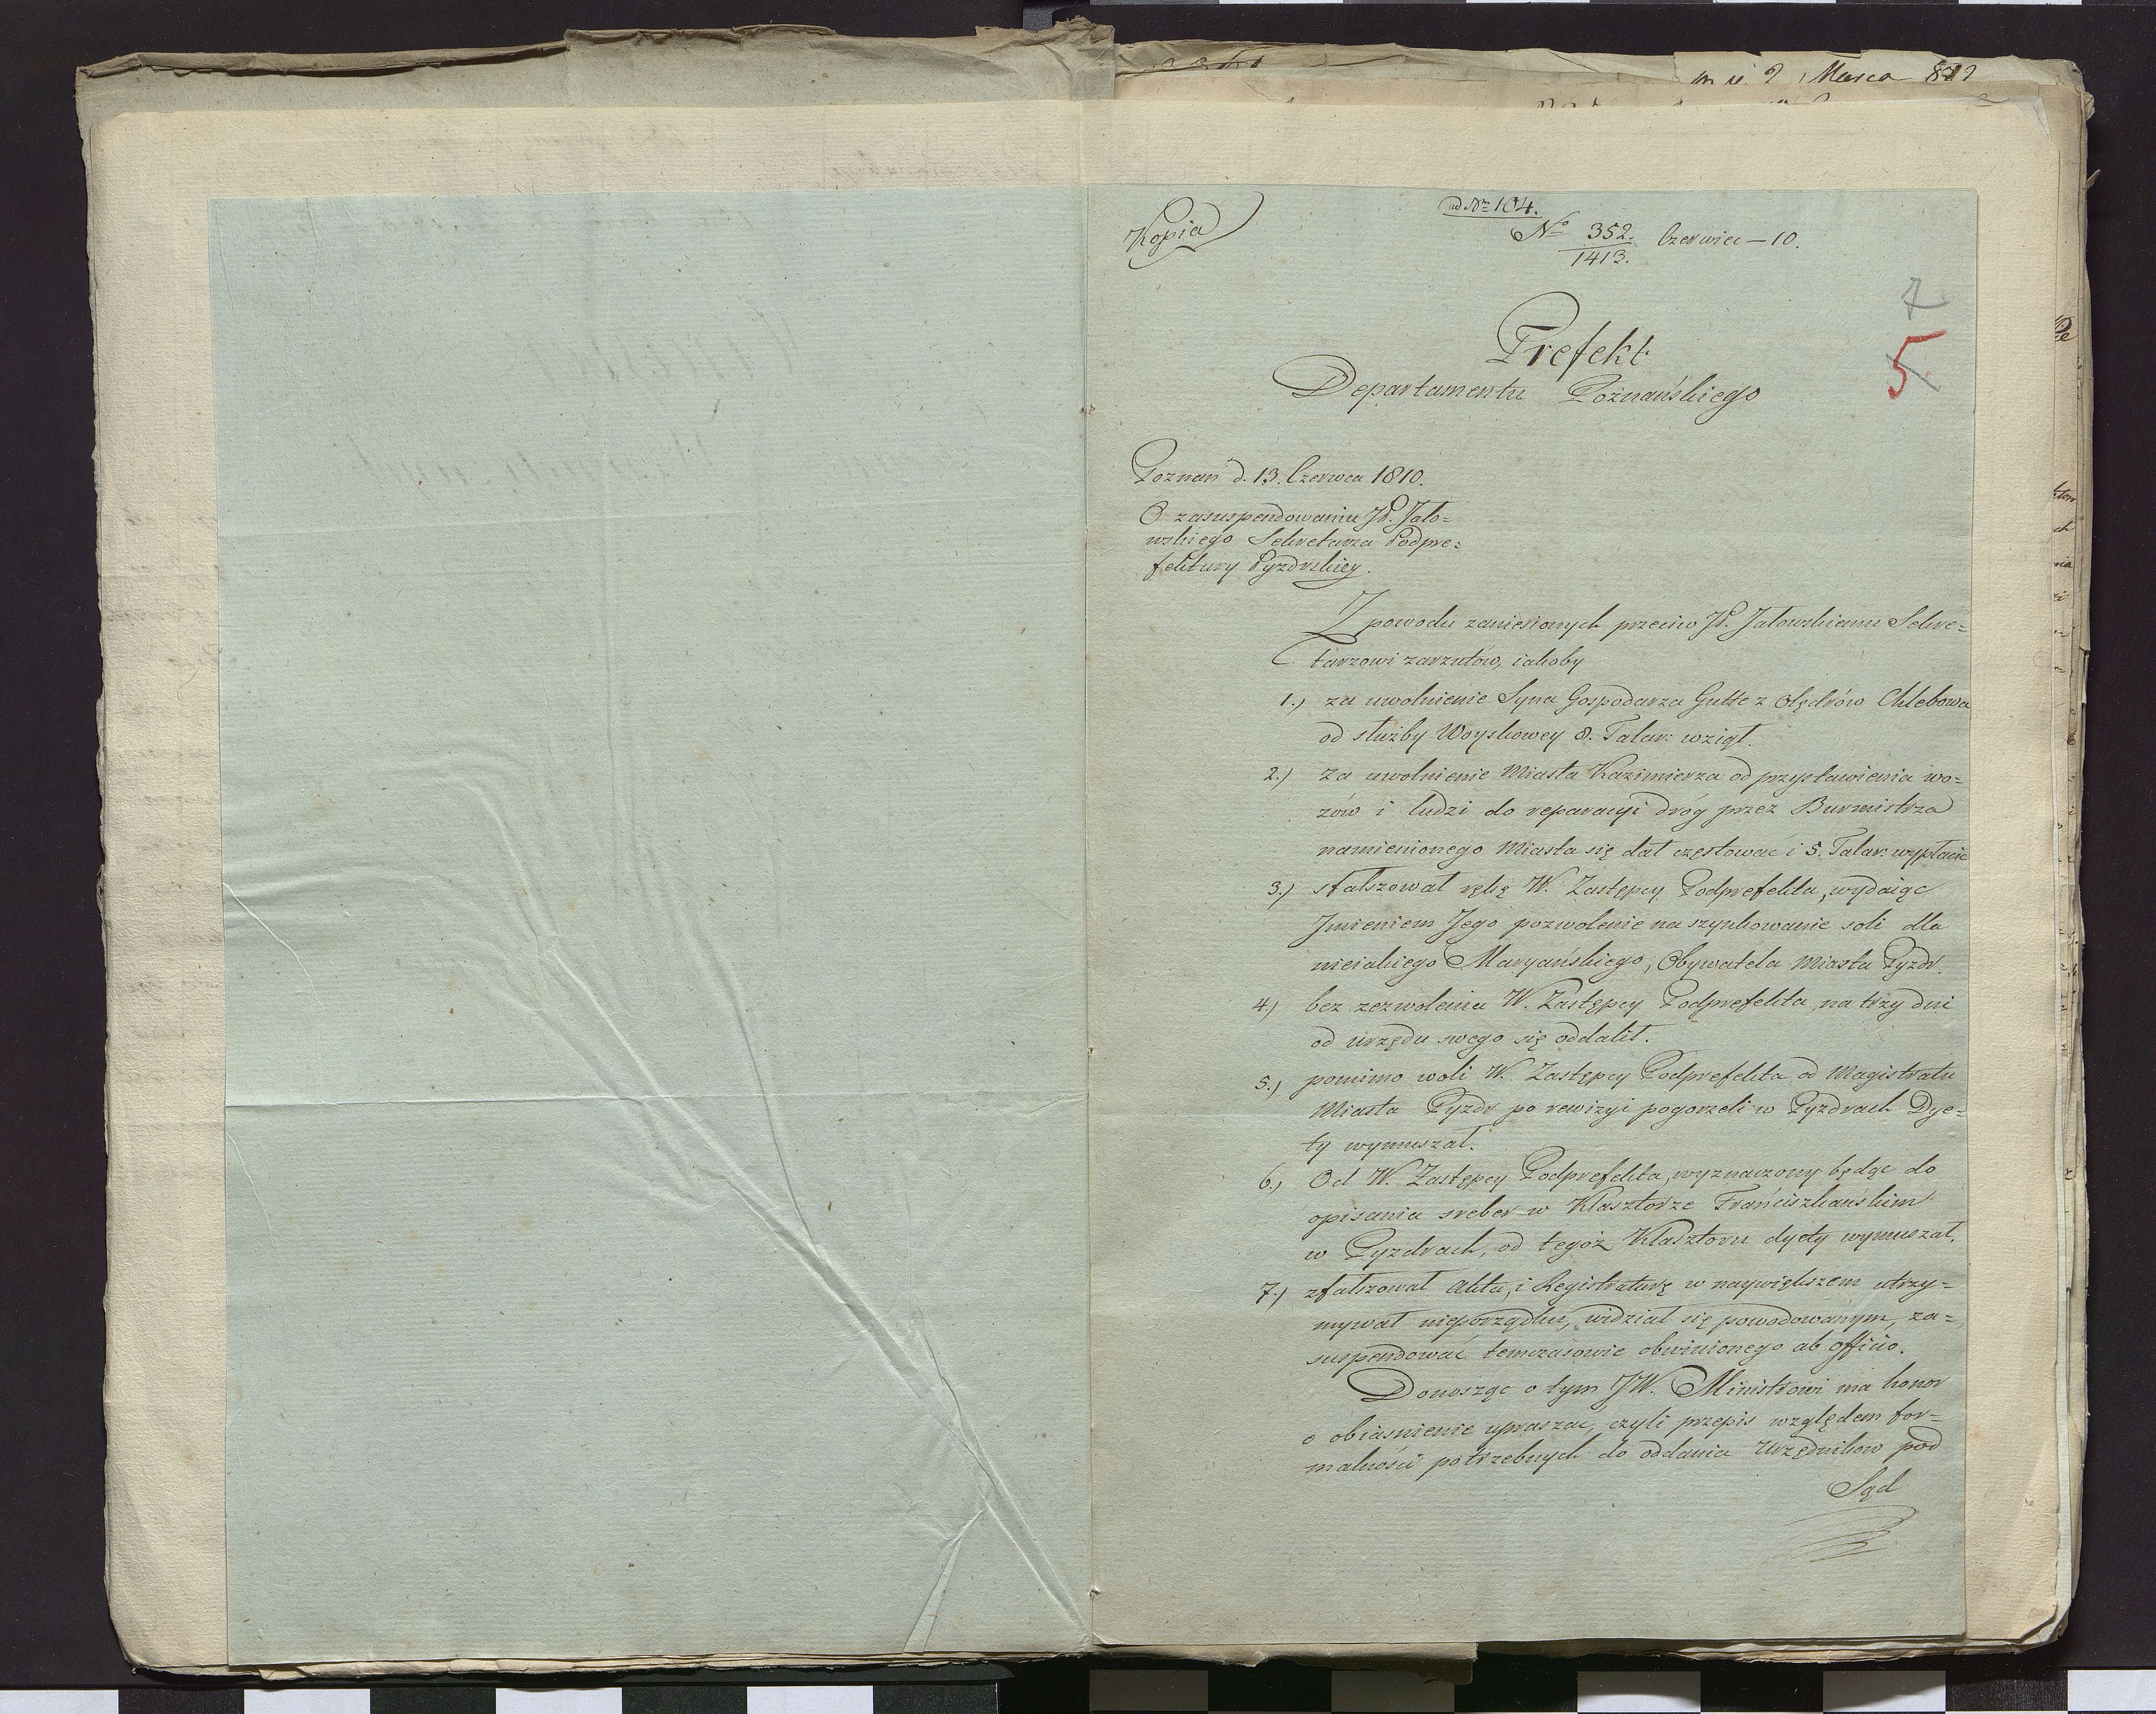 m. d. 9 Marca 812
Kopia
ad Nr 104.
No 352. Czerwiec — 10.
1413.
7
5
Prefekt
Departamentu Poznańskiego
Poznań d. 13. Czerwca 1810.
O zasuspendowaniu JP. Jało=
wskiego Sekretarza Podpre=
fektury Pyzdrskiey.
Z powodu zaniesionych przeciw JP. Jałowskiemu Sekre=
tarzowi zarzutów, iakoby
1.) za uwolnienie Syna Gospodarza Gutte z Olędrów Chlebowa
od służby Woyskowey 8. Talar: wziął.
2.) Za uwolnienie Miasta Kazimierza od przystawienia wo=
zów i ludzi do reparacyi dróg przez Burmistrza
namienionego Miasta się dał częstować i 5. Talar: wypłacić
3.) sfałszował rękę W. Zastępcy Podprefekta, wydaiąc
Jmieniem Jego pozwolenie na szynkowanie soli dla
nieiakiego Maryańskiego, Obywatela Miasta Pyzdr.
4.) bez zezwolenia W. Zastępcy Podprefekta na trzy dni
od urzędu swego się oddalił.
5.) pomimo woli W. Zastępcy Podprefekta od Magistratu
Miasta Pyzdr po rewizyi pogorzeli w Pyzdrach Dye=
ty wymuszał.
6.) Od W. Zastępcy Podprefekta, wyznaczony będąc do
opisania sreber w Klasztorze Franciszkańskim
w Pyzdrach, od tegoż Klasztoru dyety wymuszał.
7.) zfałszował Akta, i Registraturę w naywiększem utrzy=
mywał nieporządku, widział się powodowanym, za=
suspendować temczasowie obwinionego ab officio.
Donosząc o tym JW. Ministrowi ma honor
o obiaśnienie upraszać, czyli przepis względem for=
malności potrzebnych do oddania Urzędników pod
Sąd